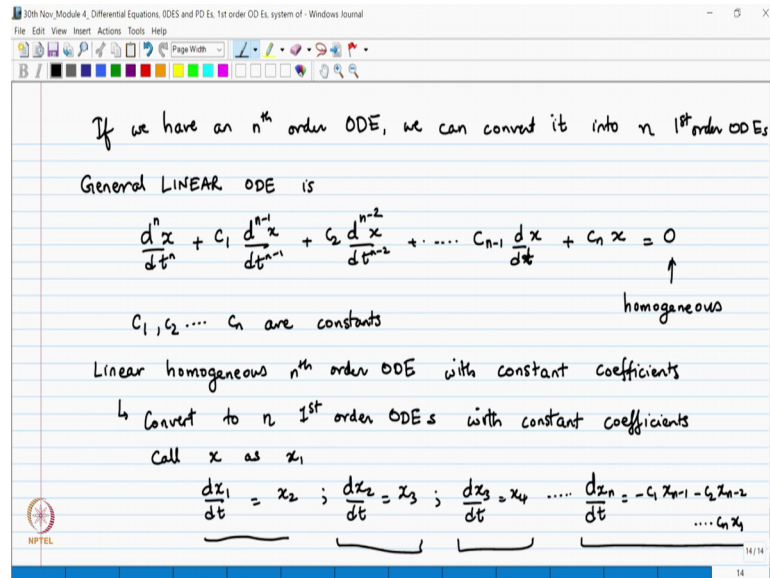 30th Nov_Module 4_ Differential Equations, ODES and PD Es, 1st order OD Es, system of - Windows Journal
File Edit View Insert Actions Tools Help
Page Width
B I
If we have an nth order ODE, we can convert it into n 1st order ODEs
General LINEAR ODE is
d^n x/dt^n + C1 d^(n-1)x/dt^(n-1) + C2 d^(n-2)x/dt^(n-2) + ..... Cn-1 dx/dt + Cn x = 0
↑
homogeneous
C1, C2 .... Cn are constants
Linear homogeneous nth order ODE with constant coefficients
↳ Convert to n 1st order ODEs with constant coefficients
Call x as x1
dx1/dt = x2 ; dx2/dt = x3 ; dx3/dt = x4 ..... dxn/dt = -C1 xn-1 - C2 xn-2
.... Cn x1
NPTEL
14/14
14